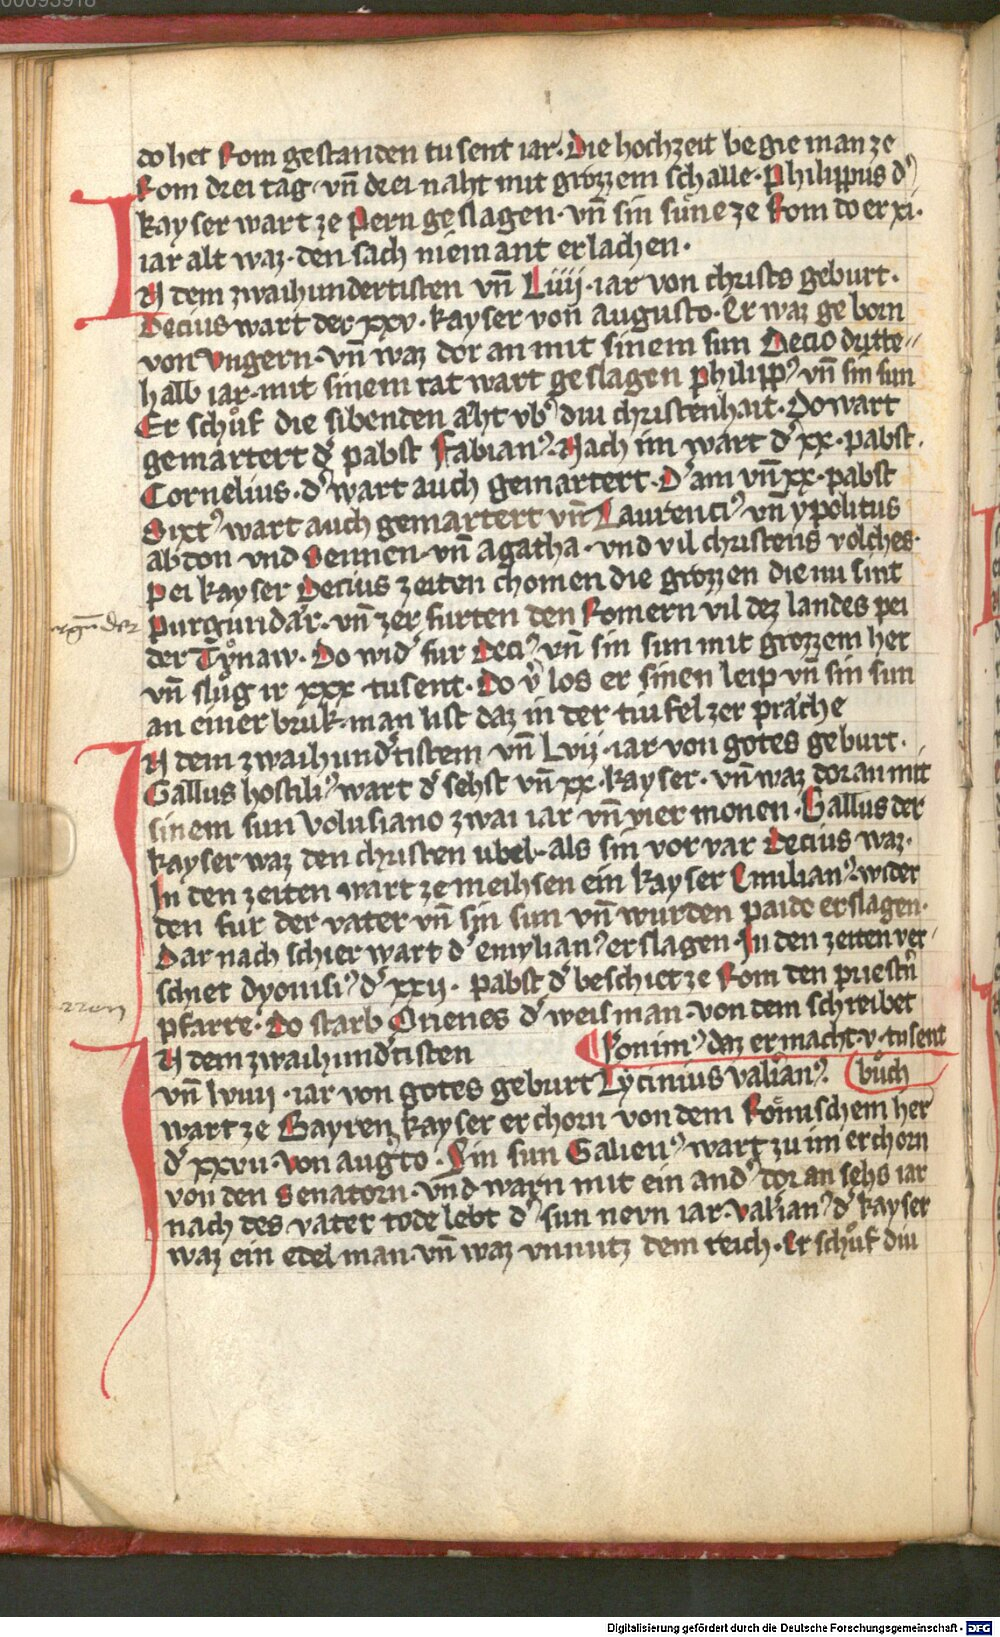 do het Rom gestanden tusent iar. Die hochzeit begie man ze
Rom drei tag vn̄ drei naht mit grozzem schalle. Philippus d᾽
kayser wart ze Pern geslagen. vn̄ sin sůne ze Rom do er xi.
iar alt waz. den sach niemant erlachen.
IN dem zwaihundertisten vn̄ Liiij. iar von christs geburt.
Decius wart der xxv. kayser von augusto. Er waz geborn
von Vngern. vn̄ waz dor an mit sinem sun Decio dritte
halb iar. mit sinem rat wart geslagen philipp᾽ vn̄ sin sun
Er schůf die sibenden aht vb᾽ diu christenhait. Do wart
gemartert d᾽ pabst Fabian᾽. Nach im wart d᾽ xx. pabst.
Cornelius. d᾽ wart auch gemartert. D᾽ ain vn̄ xx. pabst
Sixt᾽ wart auch gemartert vn̄ Laurenci᾽ vn̄ ypolitus
abdon vnd Sennen. vn̄ agatha. vnd vil christens volches.
Pei kayser Decius zeiten chomen die grozzen die nu sint
Purgundar. vn̄ zerfurten den Romern vil dez landes pei
der Tůnaw. Do wid᾽ fur Deci᾽ vn̄ sin sun mit grozzem her
vn̄ slůg ir xxx. tusent. Do v᾽los er sinen leip vn̄ sin sun
an einer bruk. man list daz in der tiufel zerpräche
IN dem zwaihund᾽tistem vn̄ Lvij. iar von gotes geburt.
Gallus hostili᾽ wart d᾽ sehst vn̄ xx. kayser. vn̄ waz dor an mit
sinem sun Volusiano zwai iar vn̄ vier monen. Gallus der
kayser waz den christen ubel. als sin vorvar Decius waz.
In den zeiten wart ze meihsen ein kayser Emilian᾽. wider
den fur der vater vn̄ sin sun vn̄ wurden paide erslagen.
Dar nach schier wart d᾽ emylian᾽ erslagen. In den zeiten ver
schiet dyonisi᾽ d᾽ xxij. pabst d᾽ beschiet ze Rom den priest᾽n
pfarre. Do starb Orienes d᾽ weis man. von dem schreibet
IN dem zwaihund᾽tisten
Ieronim᾽ daz er macht. v. tusent
bůch
vn̄ lviiij. iar von gotes geburt Lycinius valian᾽.
wart ze Bayren kayser erchorn von dem Römischem her
d᾽ xxvii. von aug᾽to. Sin sun Galien᾽ wart zu im erchorn
von den Senatorn. vnd warn mit ein and᾽ dor an sehs iar
nach des vater tode lebt d᾽ sun nevn iar. valian᾽ d᾽ kayser
waz ein edel man. vn̄ waz vnnutz dem reich. Er schůf diu
Digitalisierung gefördert durch die Deutsche Forschungsgemeinschaft - DFG